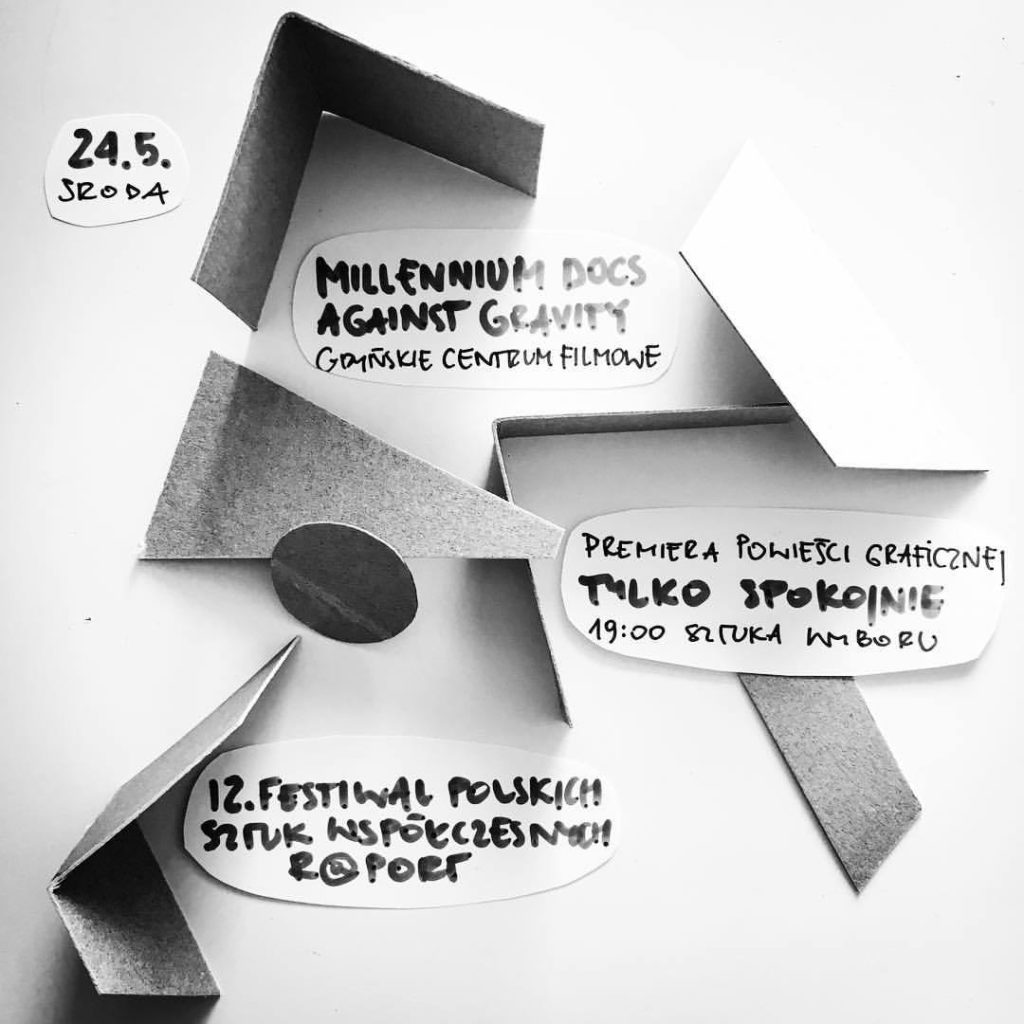 24.5.
ŚRODA
MILLENNIUM DOCS
AGAINST GRAVITY
GDYŃSKIE CENTRUM FILMOWE
PREMIERA POWIEŚCI GRAFICZNEJ
TYLKO SPOKOJNIE
19:00 SZTUKA WYBORU
12. FESTIWAL POLSKICH
SZTUK WSPÓŁCZESNYCH
R@PORT